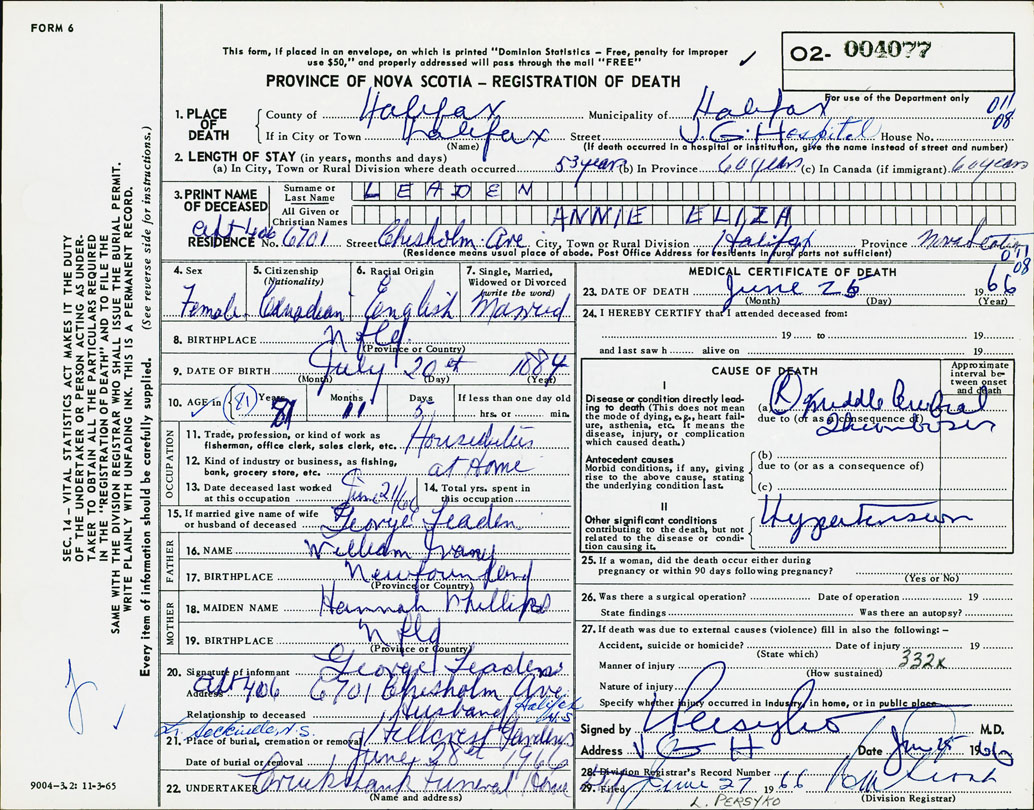 FORM 6
This form, if placed in an envelope, on which is printed "Dominion Statistics – Free, penalty for improper
use $50," and properly addressed will pass through the mail "FREE"
02- 004077
For use of the Department only
011
08
PROVINCE OF NOVA SCOTIA – REGISTRATION OF DEATH
1. PLACE OF DEATH
County of Halifax Municipality of Halifax
If in City or Town Halifax Street V.G. Hospital House No.
(Name) (If death occurred in a hospital or institution, give the name instead of street and number)
2. LENGTH OF STAY (in years, months and days)
(a) In City, Town or Rural Division where death occurred 53 years (b) In Province 60 years (c) In Canada (if immigrant) 60 years
3. PRINT NAME OF DECEASED
Surname or Last Name LEADEN
All Given or Christian Names ANNIE ELIZA
Apt 406
RESIDENCE No. 6701 Street Chisholm Ave City, Town or Rural Division Halifax Province Nova Scotia
(Residence means usual place of abode. Post Office Address for residents in rural parts not sufficient)
011
08
4. Sex Female
5. Citizenship (Nationality) Canadian
6. Racial Origin English
7. Single, Married, Widowed or Divorced (write the word) Married
8. BIRTHPLACE Nfld.
(Province or Country)
9. DATE OF BIRTH July 20 1884
(Month) (Day) (Year)
10. AGE in (81) Years 81 Months 11 Days 5 If less than one day old hrs. or min.
OCCUPATION
11. Trade, profession, or kind of work as fisherman, office clerk, sales clerk, etc. Houseduties
12. Kind of industry or business, as fishing, bank, grocery store, etc. at Home
13. Date deceased last worked at this occupation June 21/66
14. Total yrs. spent in this occupation
15. If married give name of wife or husband of deceased George Leaden
FATHER
16. NAME William Ivany
17. BIRTHPLACE Newfoundland
(Province or Country)
MOTHER
18. MAIDEN NAME Hannah Phillips
19. BIRTHPLACE Nfld
(Province or Country)
20. Signature of informant George Leaden
Address Apt 406 6701 Chisholm Ave
Halifax N.S.
Relationship to deceased Husband
Sackville, N.S.
21. Place of burial, cremation or removal Hillcrest Gardens
Date of burial or removal June 28th 1966
22. UNDERTAKER Cruikshank Funeral Home
(Name and address)
MEDICAL CERTIFICATE OF DEATH
23. DATE OF DEATH June 25 1966
(Month) (Day) (Year)
24. I HEREBY CERTIFY that I attended deceased from:
19 to 19
and last saw h alive on 19
CAUSE OF DEATH
Approximate interval between onset and death
I
Disease or condition directly leading to death (This does not mean the mode of dying, e.g., heart failure, asthenia, etc. It means the disease, injury, or complication which caused death.)
(a) (R) middle Cerebral
due to (or as a consequence of)
Thrombosis
Antecedent causes
Morbid conditions, if any, giving rise to the above cause, stating the underlying condition last.
(b)
due to (or as a consequence of)
(c)
II
Other significant conditions contributing to the death, but not related to the disease or condition causing it.
Hypertension
25. If a woman, did the death occur either during pregnancy or within 90 days following pregnancy?
(Yes or No)
26. Was there a surgical operation? Date of operation 19
State findings Was there an autopsy?
27. If death was due to external causes (violence) fill in also the following:–
Accident, suicide or homicide? Date of injury 19
(State which)
332x
Manner of injury
(How sustained)
Nature of injury
Specify whether injury occurred in industry, in home, or in public place
Signed by L Persyko M.D.
Address V G H Date June 25 1966
28. Division Registrar's Record Number
29. Filed June 27 1966
(Division Registrar)
L. PERSYKO
SEC. 14 – VITAL STATISTICS ACT MAKES IT THE DUTY
OF THE UNDERTAKER OR PERSON ACTING AS UNDER-
TAKER TO OBTAIN ALL THE PARTICULARS REQUIRED
IN THE "REGISTRATION OF DEATH" AND TO FILE THE
SAME WITH THE DIVISION REGISTRAR WHO SHALL ISSUE THE BURIAL PERMIT.
WRITE PLAINLY WITH UNFADING INK. THIS IS A PERMANENT RECORD.
Every item of information should be carefully supplied. (See reverse side for instructions.)
9004-3.2: 11-3-65